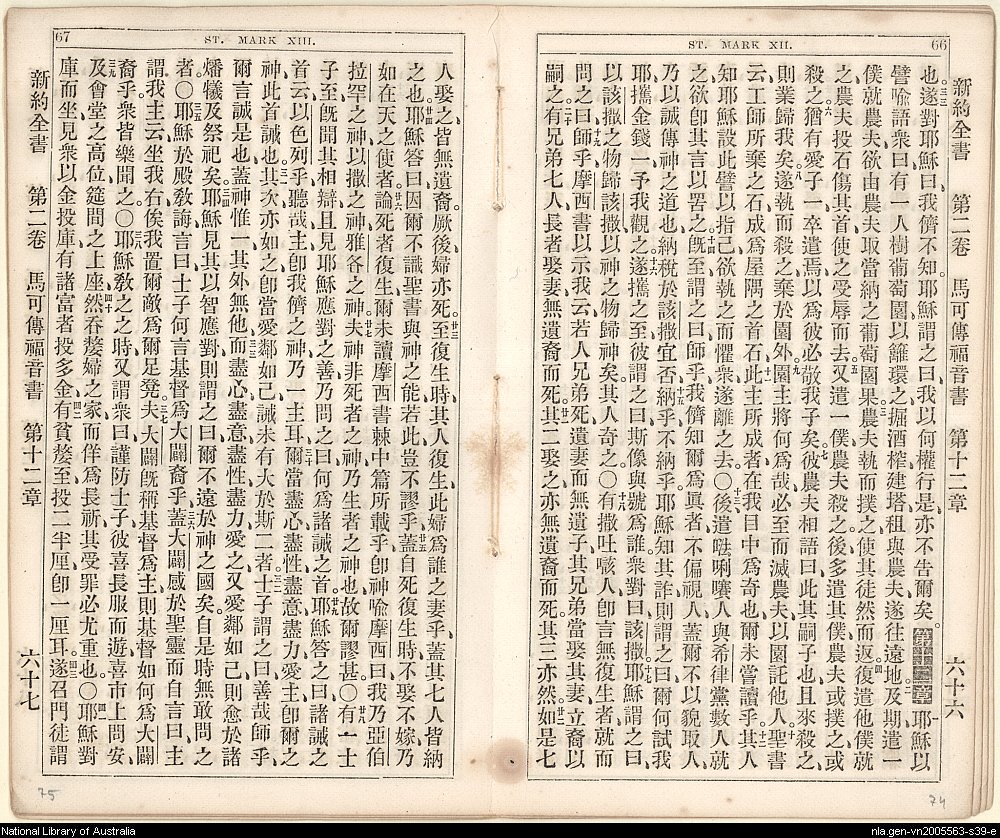 66
ST. MARK XII.
新約全書 第二卷 馬可傳福音書 第十二章 六十六
也。遂對耶穌曰、我儕不知。耶穌謂之曰、我以何權行是、亦不告爾矣。第十二章 耶穌以
譬喻語衆曰、有一人樹葡萄園、以籬環之、掘酒榨、建塔、租與農夫、遂往遠地、及期遣一
僕就農夫、欲由農夫取當納之葡萄園果、農夫執而撲之、使其徒然而返、復遣他僕就
之、農夫投石傷其首、使之受辱而去、又遣一僕、農夫殺之、後多遣其僕、農夫或撲之、或
殺之、猶有愛子一、卒遣焉、以爲彼必敬我子矣、彼農夫相語曰、此其嗣子也、且來殺之
則業歸我矣、遂執而殺之、棄於園外、園主將何爲哉、必至而滅農夫、以園託他人、聖書
云、工師所棄之石、成爲屋隅之首石、此主所成者、在我目中爲奇也、爾未嘗讀乎、其人
知耶穌設此譬以指己、欲執之而懼衆、遂離之去。〇後遣唎嚷人與希律黨數人就
之、欲卽其言以罟之、旣至謂之曰、師乎、我儕知爾爲眞者、不偏視人、蓋爾不以貌取人
乃以誠傳神之道也、納稅於該撒宜否、納乎、不納乎、耶穌知其詐、則謂之曰、爾何試我
耶、攜金錢一予我觀之、遂攜之至、彼謂之曰、斯像與號爲誰、衆對曰、該撒、耶穌謂之曰、
以該撒之物歸該撒、以神之物歸神矣、其人奇之。〇有撒吐咳人、卽言無復生者、就而
問之曰、師乎、摩西書以示我云、若人兄弟死、遺妻而無遺子、其兄弟當娶其妻、立裔以
嗣之、有兄弟七人、長者娶妻、無遺裔而死、其二娶之、亦無遺裔而死、其三亦然、如是七
67
ST. MARK XIII.
人娶之、皆無遺裔、厥後婦亦死、至復生時、其人復生、此婦爲誰之妻乎、蓋其七人皆納
之也、耶穌答曰、因爾不識聖書與神之能、若此豈不謬乎、蓋自死復生時、不娶不嫁、乃
如在天之使者、論死者復生、爾未讀摩西書棘中篇所載乎、卽神喩摩西曰、我乃亞伯
拉罕之神、以撒之神、雅各之神、夫神非死者之神、乃生者之神也、故爾謬甚。〇有一士
子至、旣聞其相辯、且見耶穌應對之善、乃問之曰、何爲諸誡之首、耶穌答之曰、諸誡之
首云、以色列乎、聽哉、主卽我儕之神、乃一主耳、爾當盡心盡性盡意盡力、愛主卽爾之
神、此首誡也、其次亦如之、卽當愛鄰如己、誡未有大於斯二者、士子謂之曰、善哉師乎、
爾言誠是也、蓋神惟一、其外無他、而盡心盡意盡性盡力愛之、又愛鄰如己、則愈於諸
燔犧及祭祀矣、耶穌見其以智應對、則謂之曰、爾不遠於神之國矣、自是時無敢問之
者。〇耶穌於殿敎誨言曰、士子何言基督爲大闢裔乎、蓋大闢感於聖靈而自言曰、主
謂我主云、坐我右、俟我置爾敵爲爾足凳、夫大闢旣稱基督爲主、則基督如何爲大闢
裔乎、衆皆樂聞之。〇耶穌敎之之時、又謂衆曰、謹防士子、彼喜長服而遊、喜市上問安、
及會堂之高位、筵間之上座、然吞嫠婦之家、而佯爲長祈、其受罪必尤重也。〇耶穌對
庫而坐、見衆以金投庫、有諸富者投多金、有貧嫠至、投二半厘、卽一厘耳、遂召門徒謂
新約全書 第二卷 馬可傳福音書 第十二章 六十七
74
75
National Library of Australia
nla.gen-vn2005563-s39-e